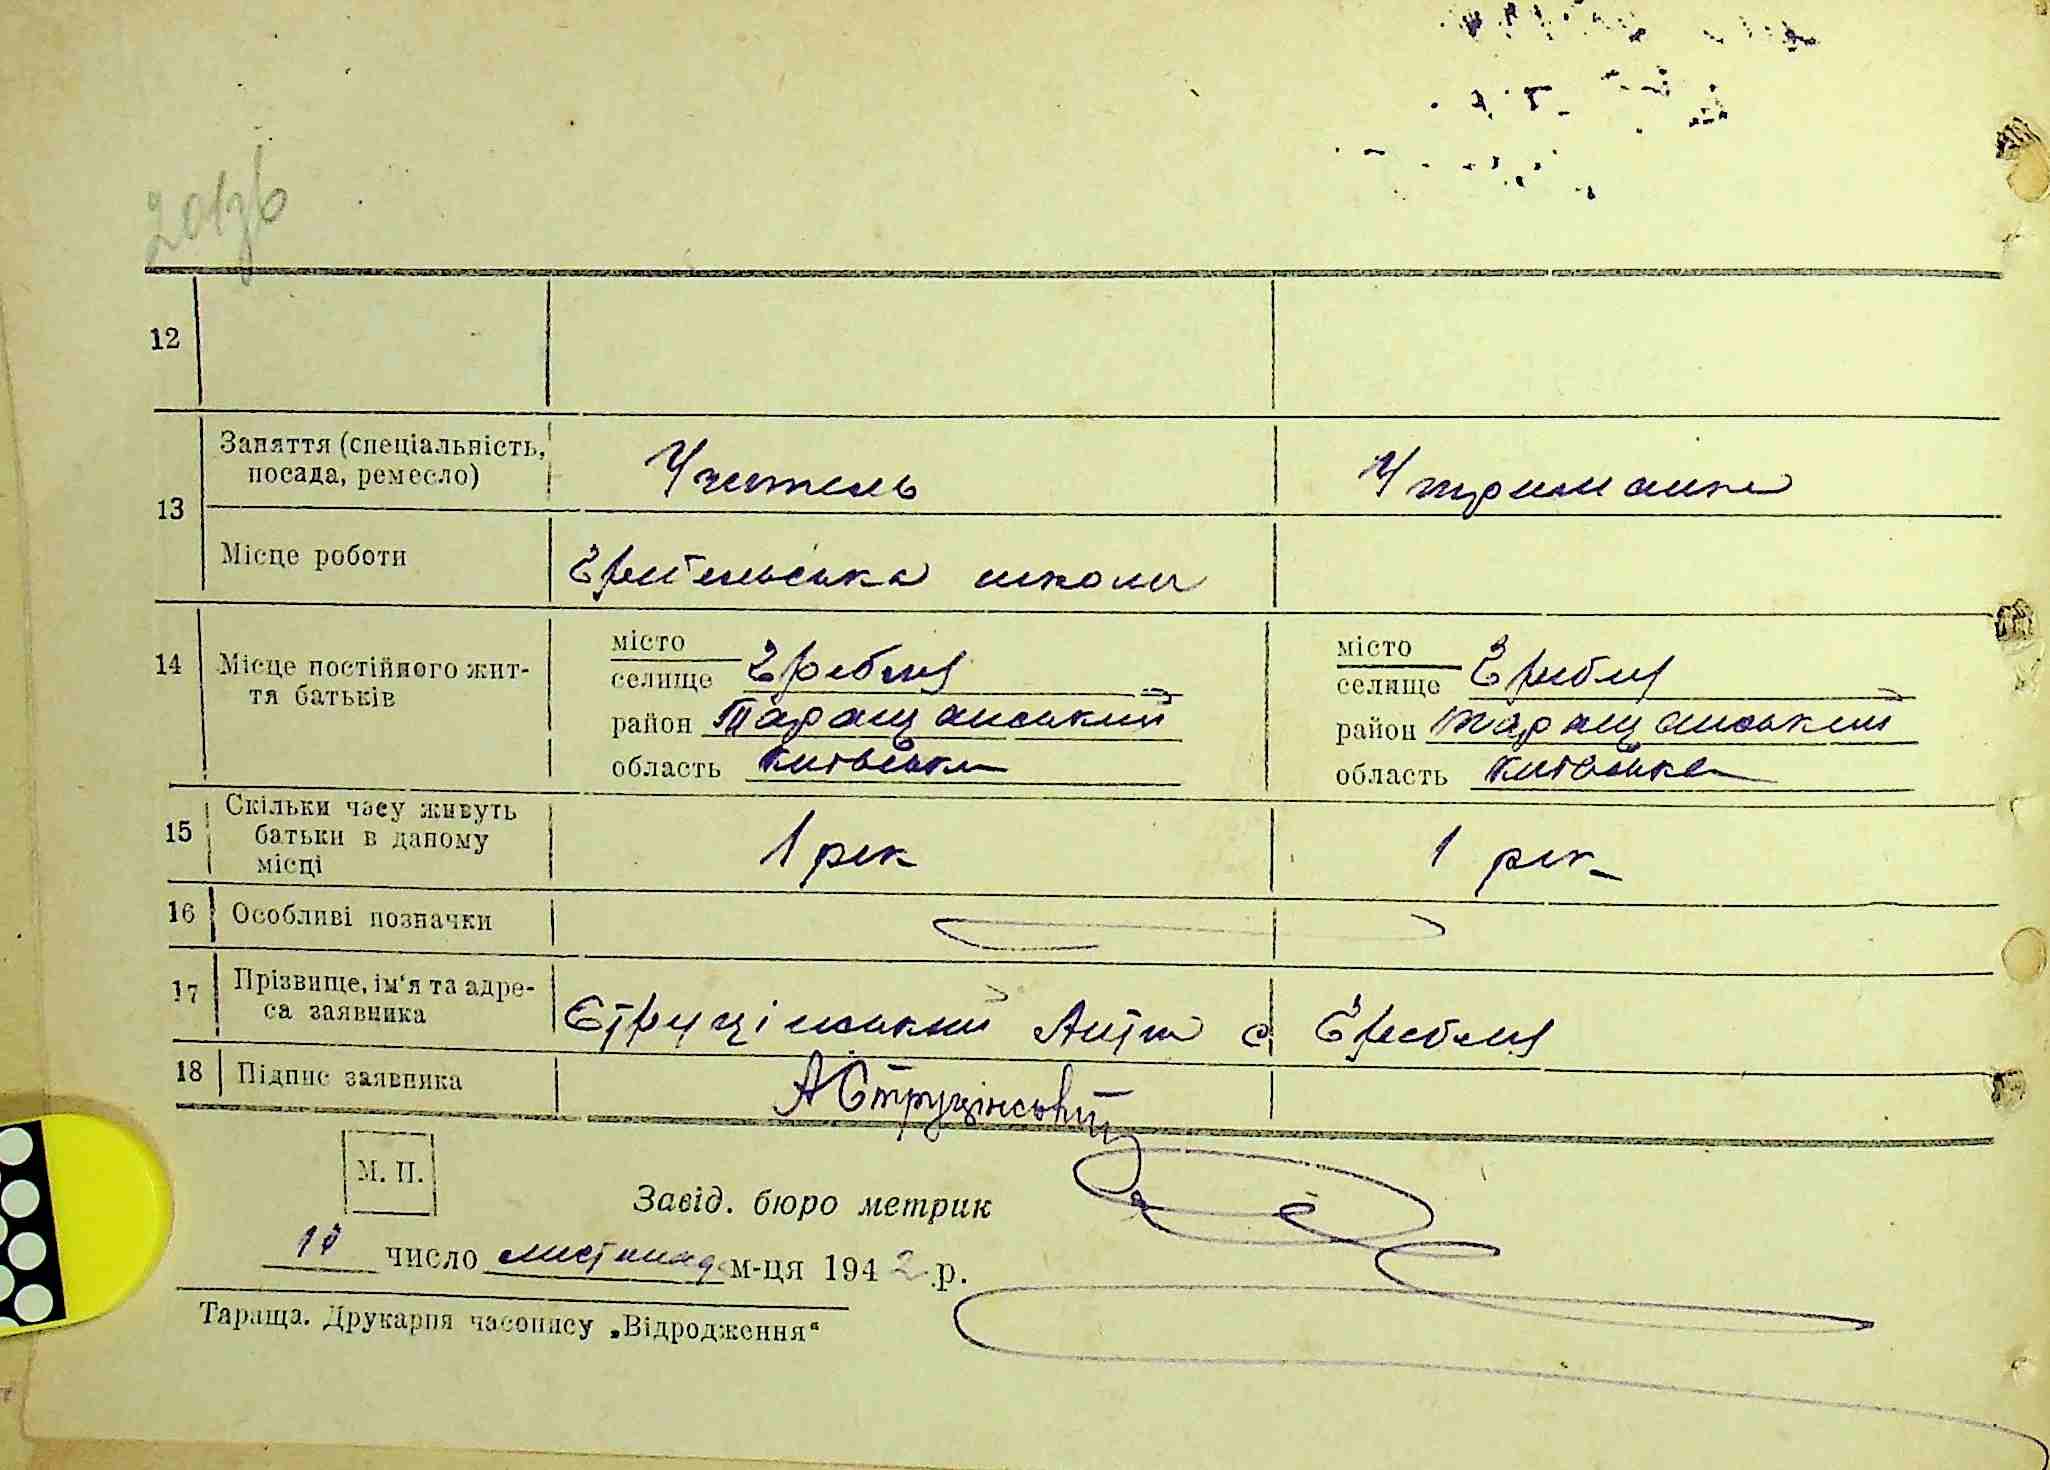 12
13 Заняття (спеціальність, посада, ремесло) Учитель Утриманка
Місце роботи Гребельська школа
14 Місце постійного жит-
тя батьків
місто
селище Гребля
район Таращанський
область Київська
місто
селище Гребля
район Таращанський
область Київська
15 Скільки часу живуть
батьки в даному
місці
1 рік 1 рік
16 Особливі позначки
17 Прізвище, ім'я та адре-
са заявника
Струцінський Антін с Гребля
18 Підпис заявника АСтруцінський
М. П.
Завід. бюро метрик
число листопад м-ця 1942 р.
Тараща. Друкарня часопису „Відродження“